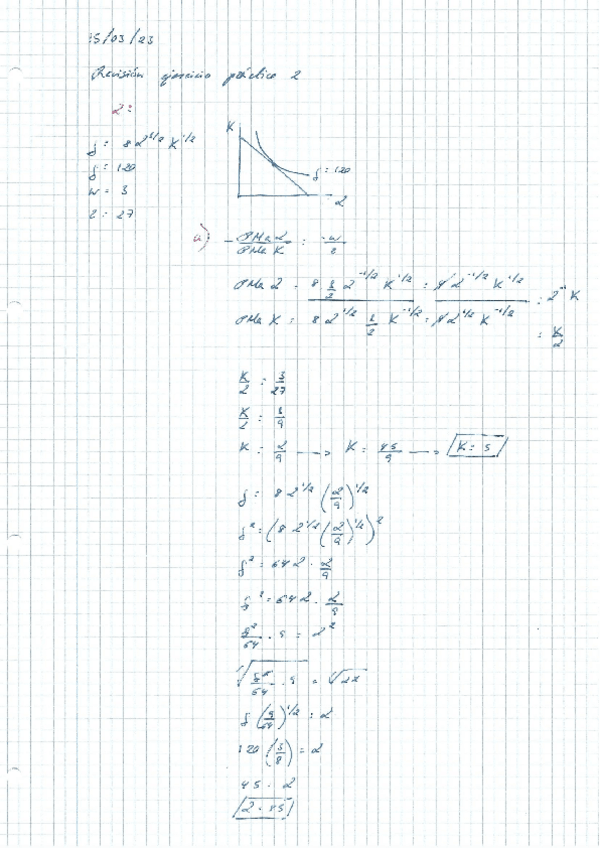 15/03/23
Revisión ejercicio práctico 2
2:
q = 8 L^1/2 K^1/2
q = 120
w = 3
r = 27
K
q = 120
L
a) - PMa L / PMa K = -w / r
PMa L = 8 1/2 L^-1/2 K^1/2 = 4 L^-1/2 K^1/2 = L^-1 K
PMa K = 8 L^1/2 1/2 K^-1/2 = 4 L^1/2 K^-1/2
= K/L
K/L = 3/27
K/L = 1/9
K = L/9 → K = 45/9 → K = 5
q = 8 L^1/2 (L/9)^1/2
q² = (8 L^1/2 (L/9)^1/2)²
q² = 64 L · L/9
q² = 64 L · L/9
q²/64 · 9 = L²
√(q²/64 · 9) = √L²
q (9/64)^1/2 = L
120 (3/8) = L
45 = L
L = 45